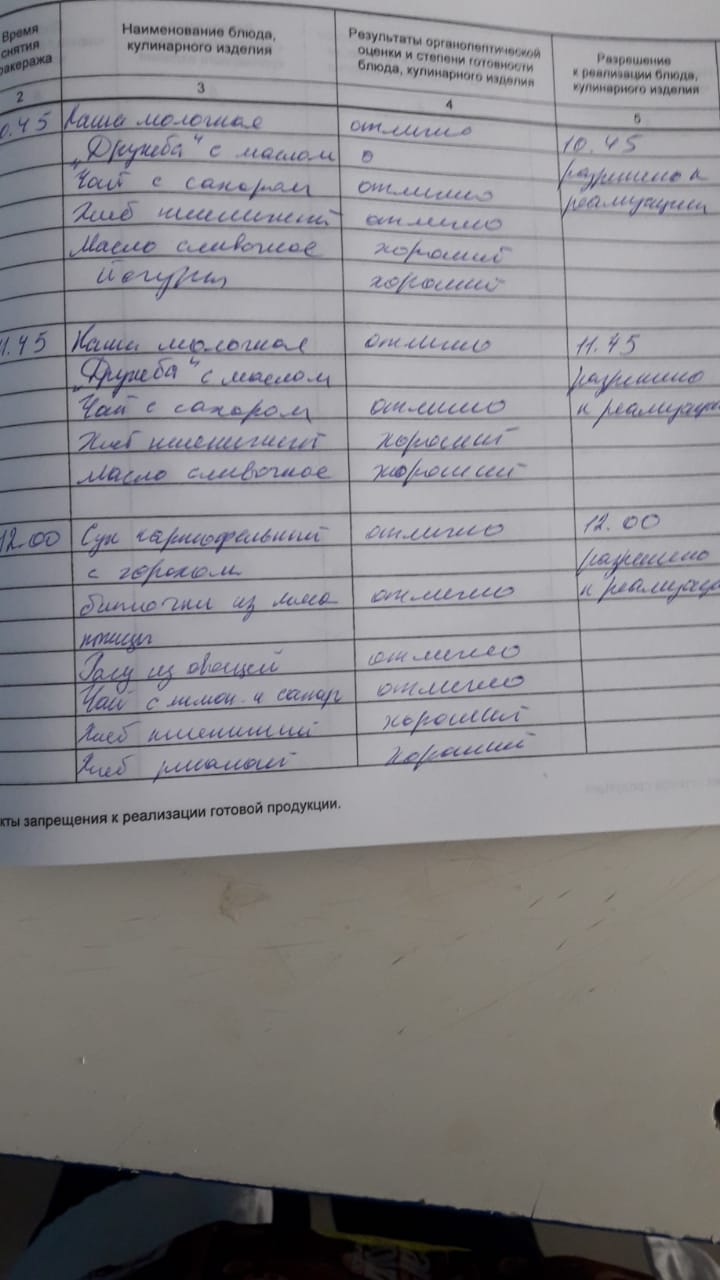 Время
снятия
бракеража
Наименование блюда,
кулинарного изделия
Результаты органолептической
оценки и степени готовности
блюда, кулинарного изделия
Разрешение
к реализации блюда,
кулинарного изделия
2
3
4
5
0.45 Каша молочная отлично 10.45
„Дружба" с маслом о разрешено к
Чай с сахаром отлично реализации
Хлеб пшеничный отлично
Масло сливочное хороший
Йогурт хороший
11.45 Каша молочная отлично 11.45
„Дружба" с маслом разрешено
Чай с сахаром отлично к реализаци
Хлеб пшеничный хороший
масло сливочное хороший
12.00 Суп картофельный отлично 12.00
с горохом разрешено
биточки из мяса отлично к реализаци
птицы
Рагу из овощей отлично
Чай с лимон. и сахар отлично
Хлеб пшеничный хороший
Хлеб ржаной хороший
кты запрещения к реализации готовой продукции.